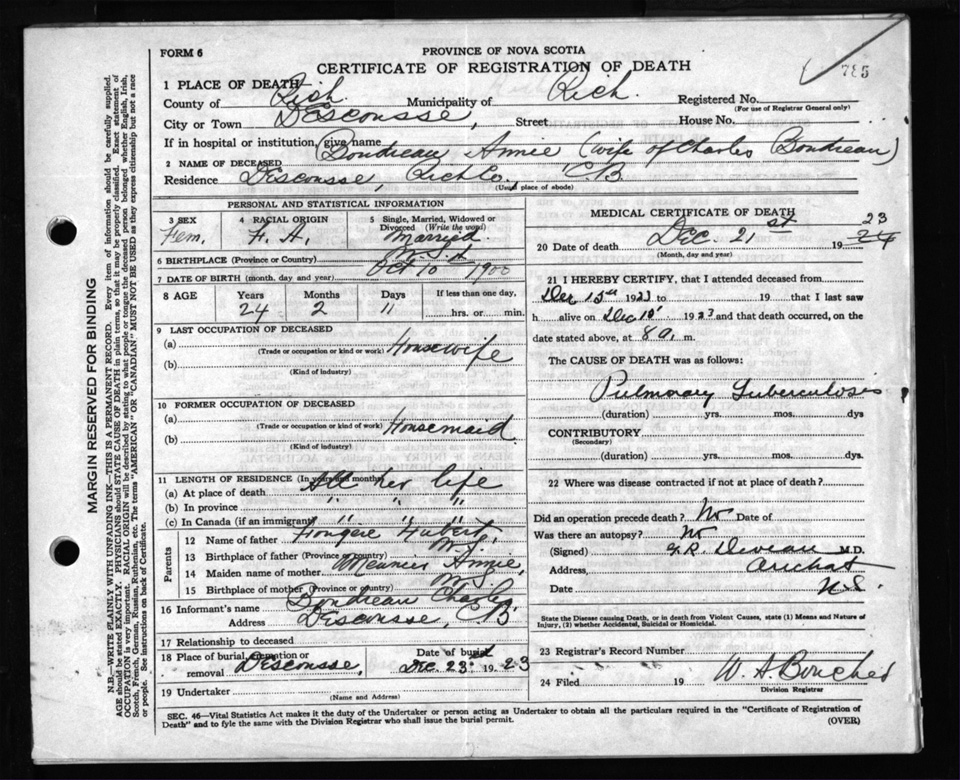 FORM 6
PROVINCE OF NOVA SCOTIA
CERTIFICATE OF REGISTRATION OF DEATH
785
1 PLACE OF DEATH
County of Rich. Municipality of Rich. Registered No.
(For use of Registrar General only)
City or Town Descousse, Street House No.
If in hospital or institution, give name
2 NAME OF DECEASED Boudreau Annie (wife of Charles Boudreau)
Residence Descousse, Rich Co. C.B.
(Usual place of abode)
PERSONAL AND STATISTICAL INFORMATION
3 SEX Fem.
4 RACIAL ORIGIN F. A.
5 Single, Married, Widowed or Divorced (Write the word) Married
6 BIRTHPLACE (Province or Country)
7 DATE OF BIRTH (month, day and year) Oct 10 1900
8 AGE Years Months Days If less than one day,
24 2 11 hrs. or min.
9 LAST OCCUPATION OF DECEASED
(a) Housewife
(Trade or occupation or kind or work)
(b)
(Kind of industry)
10 FORMER OCCUPATION OF DECEASED
(a) Housemaid.
(Trade or occupation or kind of work)
(b)
(Kind of industry)
11 LENGTH OF RESIDENCE (In years and months)
(a) At place of death All her life
(b) In province " " "
(c) In Canada (if an immigrant) " " "
Parents
12 Name of father Fougere Hubert,
13 Birthplace of father (Province or country) N.S.
14 Maiden name of mother Meunier Annie,
15 Birthplace of mother (Province or country) N.S.
16 Informant's name Boudreau Charles
Address Descousse, C.B.
17 Relationship to deceased
18 Place of burial, cremation or removal Descousse, Date of burial Dec. 23 1923
19 Undertaker
(Name and Address)
MEDICAL CERTIFICATE OF DEATH
20 Date of death Dec. 21st 19 24 23
(Month, day and year)
21 I HEREBY CERTIFY, that I attended deceased from
Dec 15th 1923 to 19 that I last saw
h alive on Dec 1923 and that death occurred, on
date stated above, at 8 a. m.
The CAUSE OF DEATH was as follows:
Pulmonary Tuberculosis
(duration) yrs. mos. dys
CONTRIBUTORY
(Secondary)
(duration) yrs. mos. dys.
22 Where was disease contracted if not at place of death?
Did an operation precede death? No Date of
Was there an autopsy? No
(Signed) Deveau M.D.
Address, Arichat
Date N.S.
State the Disease causing Death, or in death from Violent Causes, state (1) Means and Nature of Injury, (2) whether Accidental, Suicidal or Homicidal.
23 Registrar's Record Number
24 Filed 19 W. A. Bouchie
Division Registrar
SEC. 46—Vital Statistics Act makes it the duty of the Undertaker or person acting as Undertaker to obtain all the particulars required in the "Certificate of Registration of
Death" and to fyle the same with the Division Registrar who shall issue the burial permit.
(OVER)
MARGIN RESERVED FOR BINDING
N.B.—WRITE PLAINLY WITH UNFADING INK—THIS IS A PERMANENT RECORD. Every item of information should be carefully supplied.
AGE should be stated EXACTLY. PHYSICIANS should STATE CAUSE OF DEATH in plain terms, so that it may be properly classified. Exact statement of
OCCUPATION is very important. RACIAL ORIGIN will be described by stating to what people or tongue the deceased person belonged whether English, Irish,
Scotch, French, German, Russian, Ruthenian, etc. The terms "AMERICAN" OR "CANADIAN" MUST NOT BE USED as they express citizenship but not a race
or people. See instructions on back of Certificate.